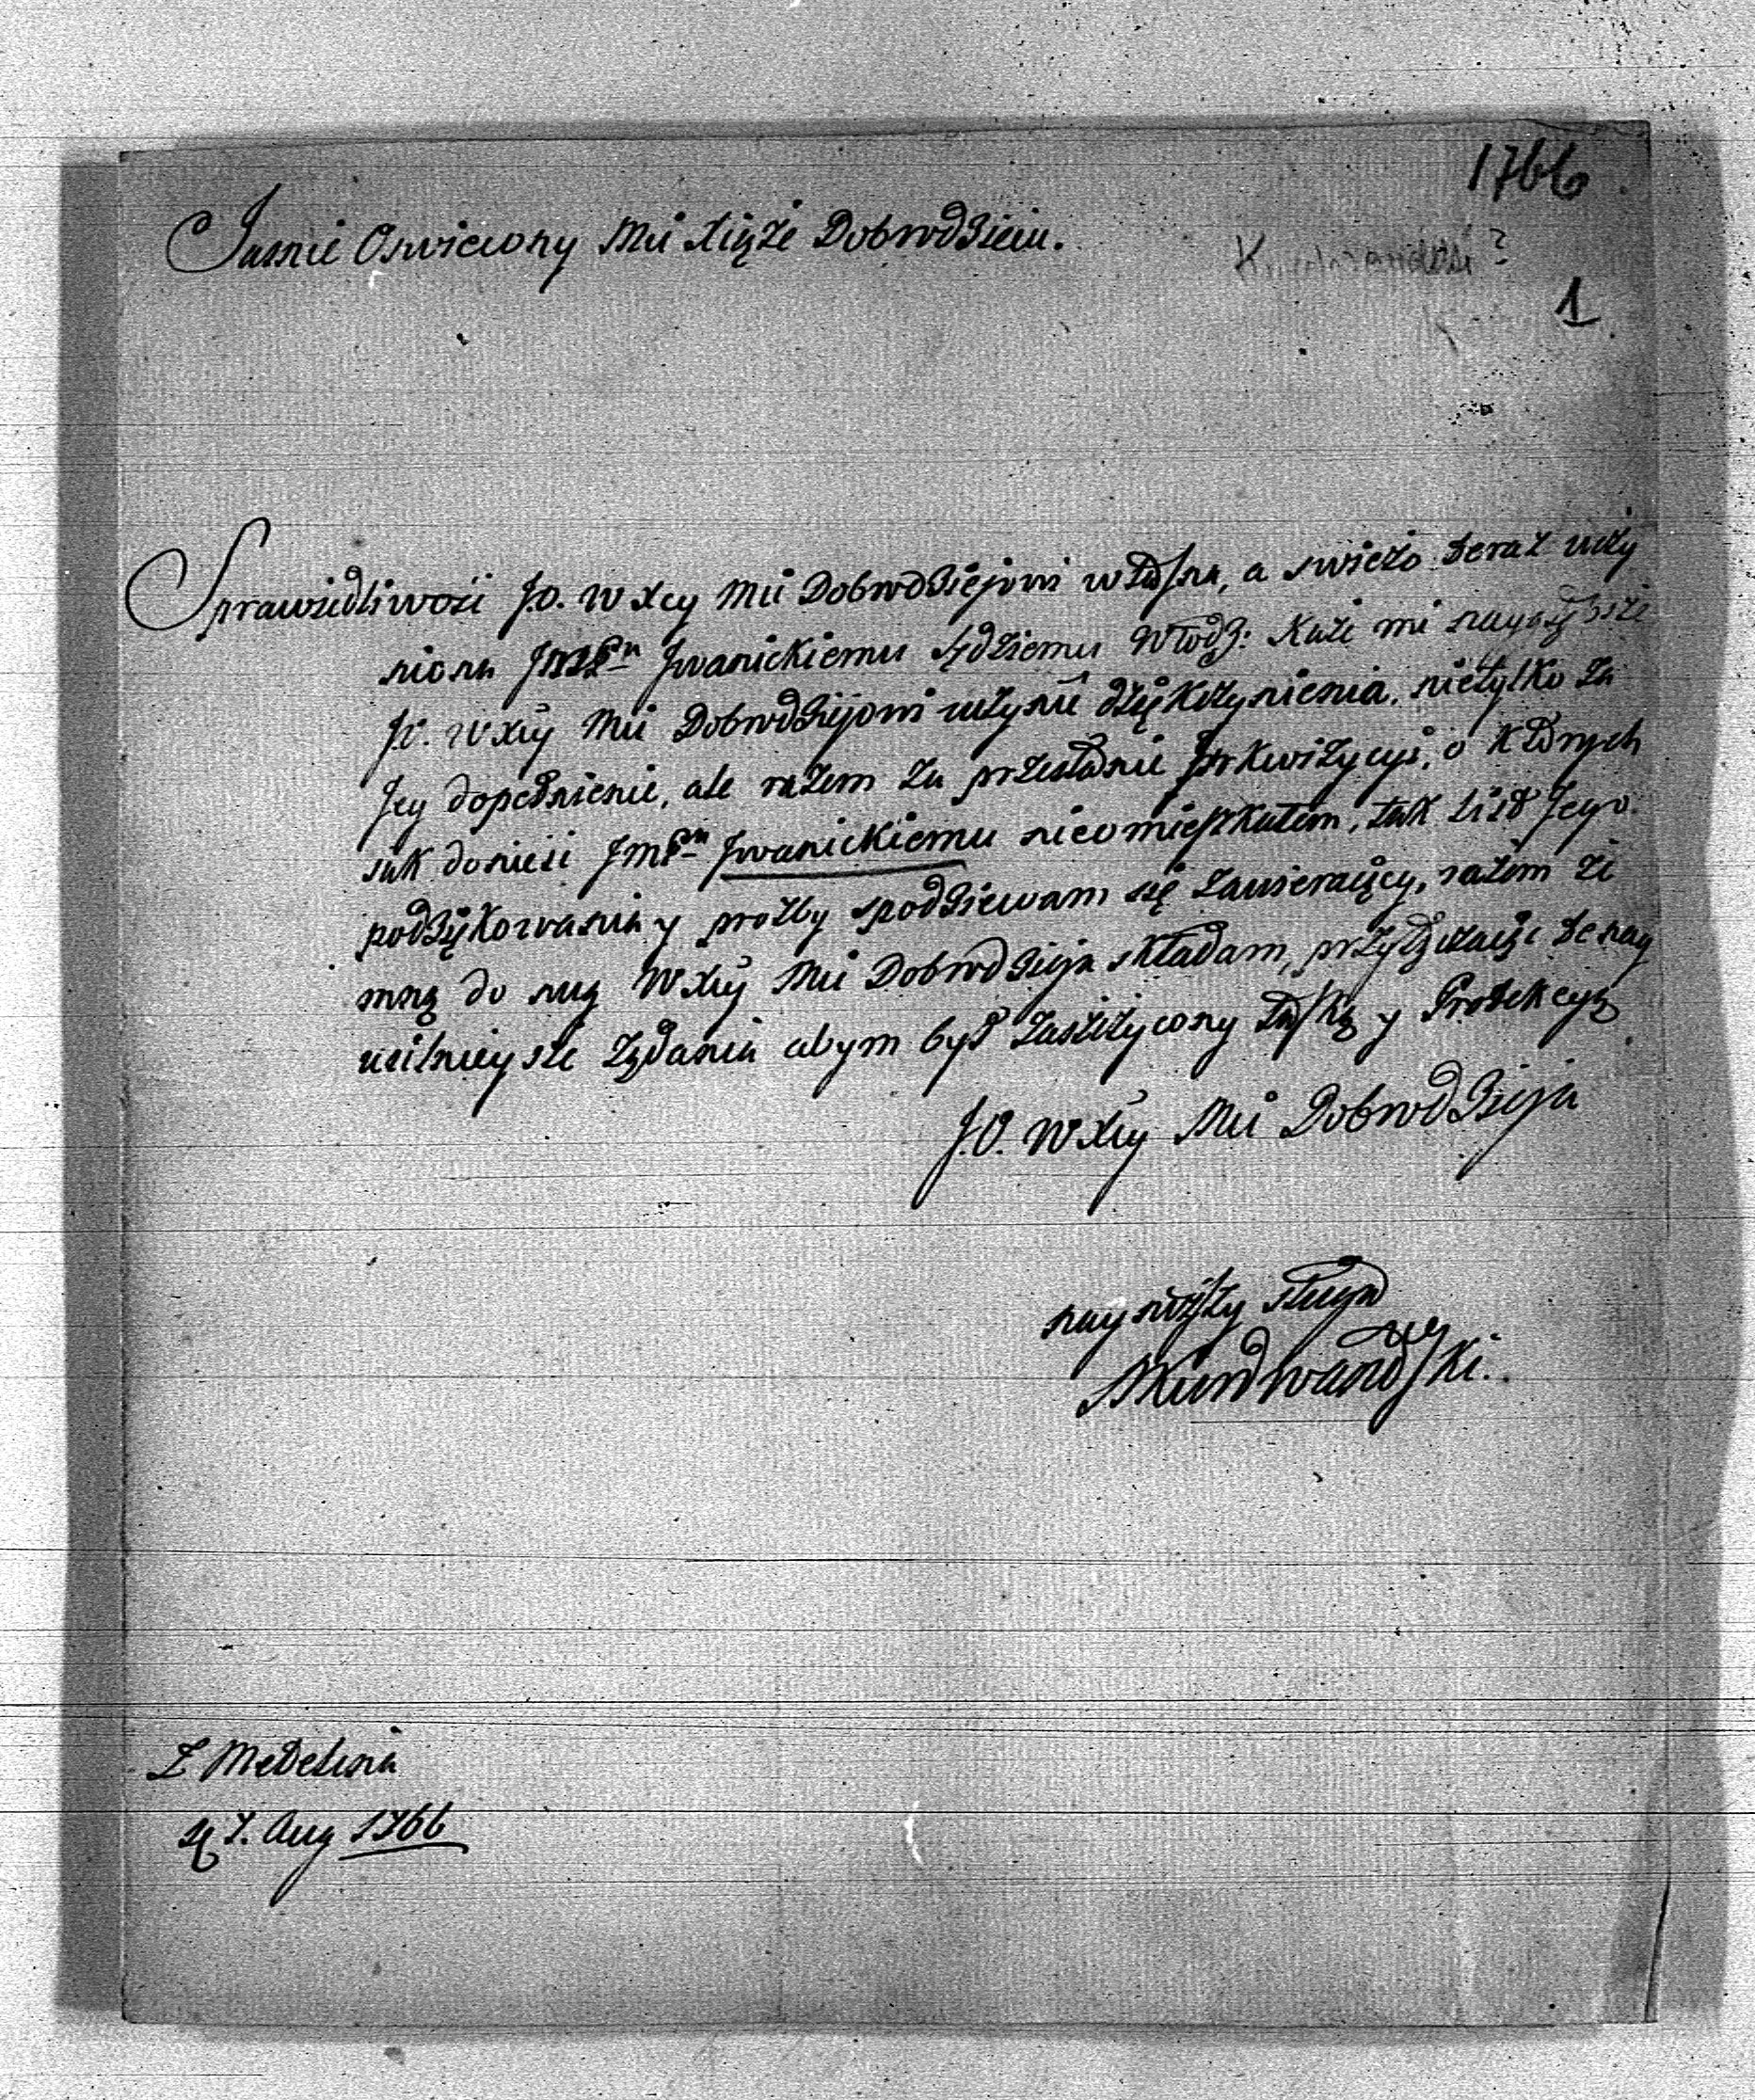 1766
Jasnie Oswiecony Mci Xiąże Dobrodzieiu.
1
Sprawiedliwosc J.O. W Xcy Mci Dobrodziejowi własna, a swiezo teraz uczy
niona JmPn Jwanickiemu Sędziemu Włodz: Każe mi nayczęsze
J.O. W Xcy Mci Dobrodziejowi uczynic dzięk czynienia, nietylko za
Jey dopełnienie, ale razem za przesłanie Jnkwizycyi, o ktorych
jak doniesc JmPn Jwanickiemu nieomieszkałem, tak List Jego
podziękowania y prozby spodziewam się zawieraiący, razem ze
mną do nug W Xcy Mci Dobrodzieja składam, przyłączaiąc te nay
usilnieysze żądania abym był zaszczycony Łaską y Protekcyą
J.O. W Xcy Mci Dobrodzieja
nayniższy sługa
Z Medelina
7. Aug 1766